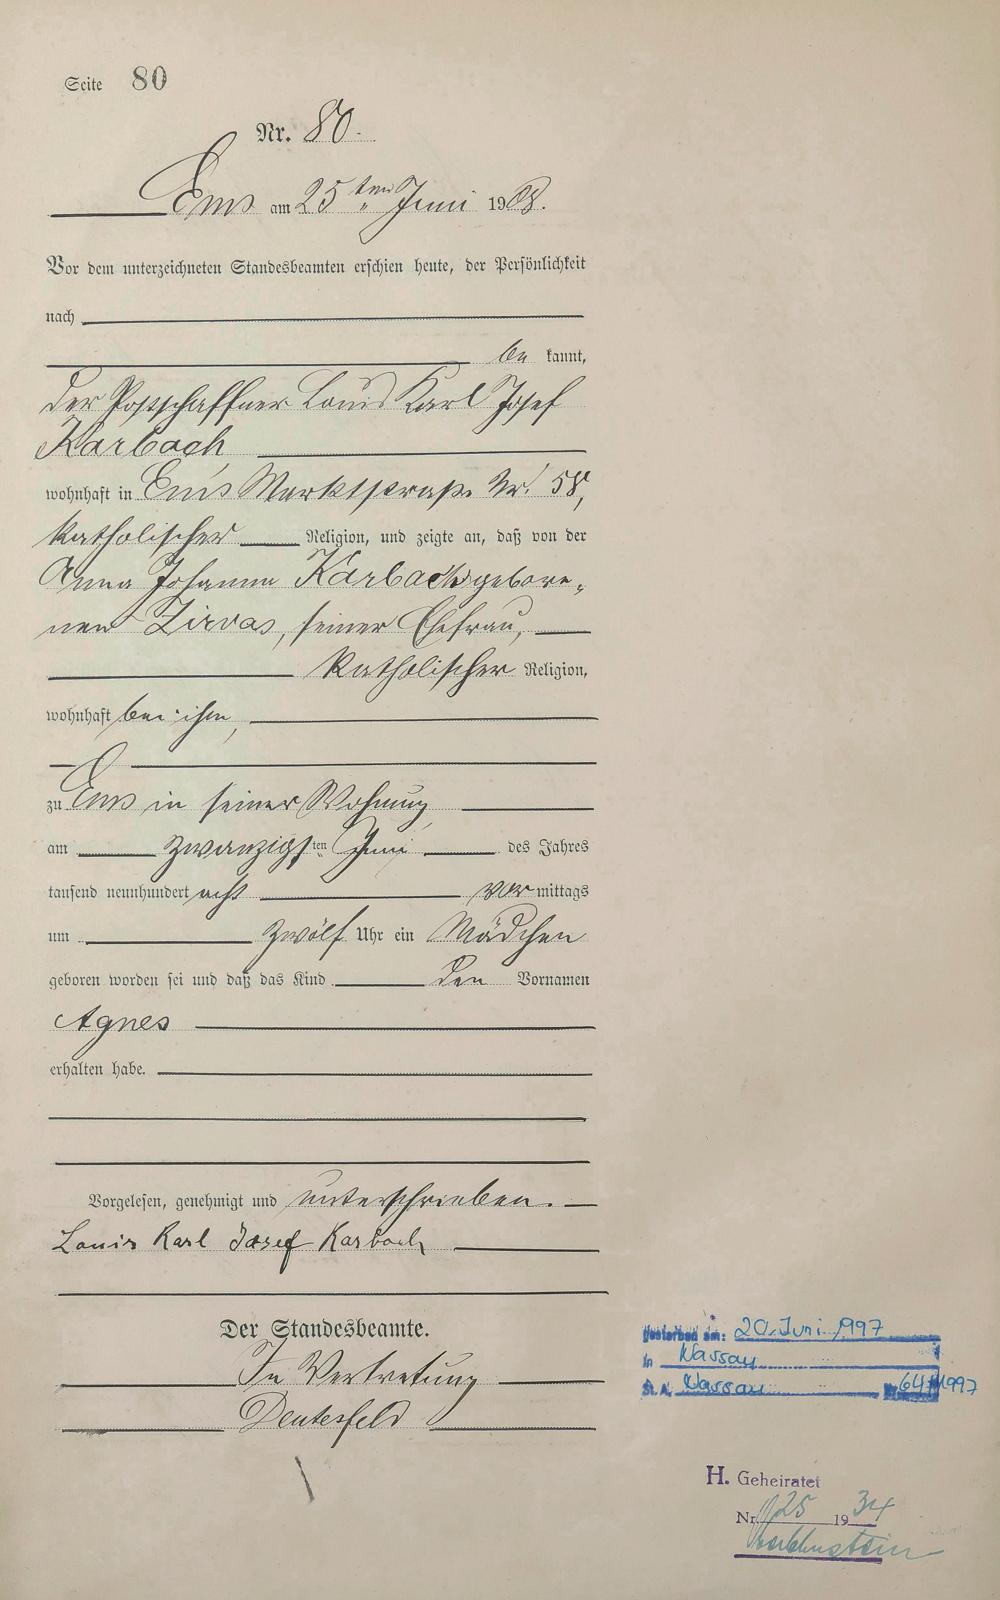 Seite 80
Nr. 80.
Ems am 25ten Juni 1908.
Vor dem unterzeichneten Standesbeamten erschien heute, der Persönlichkeit
nach
be kannt,
der Postschaffner Louis Karl Josef
Karbach
wohnhaft in Ems Marktstraße Nr. 58,
katholischer Religion, und zeigte an, daß von der
Anna Johanna Karbach gebore-
nen Zirvas, seiner Ehefrau,
katholischer Religion,
wohnhaft bei ihm,
zu Ems in seiner Wohnung,
am zwanzigsten Juni des Jahres
tausend neunhundert acht vor mittags
um zwölf Uhr ein Mädchen
geboren worden sei und daß das Kind den Vornamen
Agnes
erhalten habe.
Vorgelesen, genehmigt und unterschrieben.
Louis Karl Josef Karbach
Der Standesbeamte.
In Vertretung
Deutesfeld
Gestorben am: 20. Juni 1997
in Nassau
St. A. Nassau Nr. 64/1997
H. Geheiratet
Nr. 25 1934